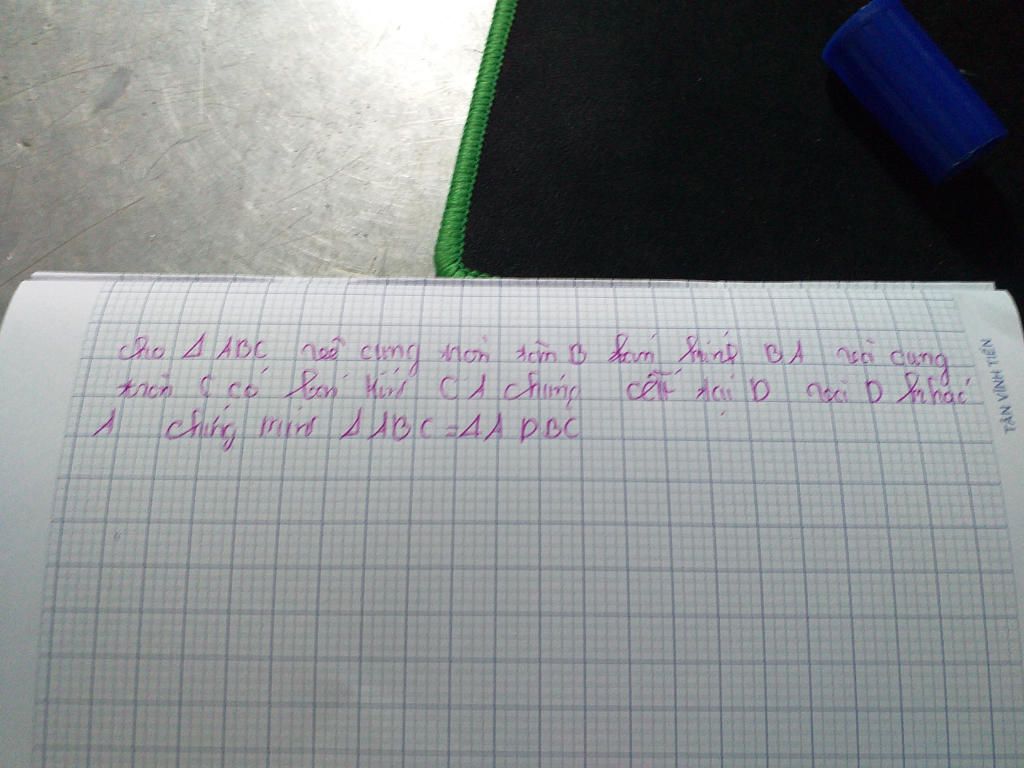 cho Δ ABC vẽ cung tròn tâm B bán kính BA và cung
tròn C có bán kính CA chúng cắt tại D và D khác
A chứng minh Δ ABC = Δ A DBC
TÂN VĨNH TIẾN